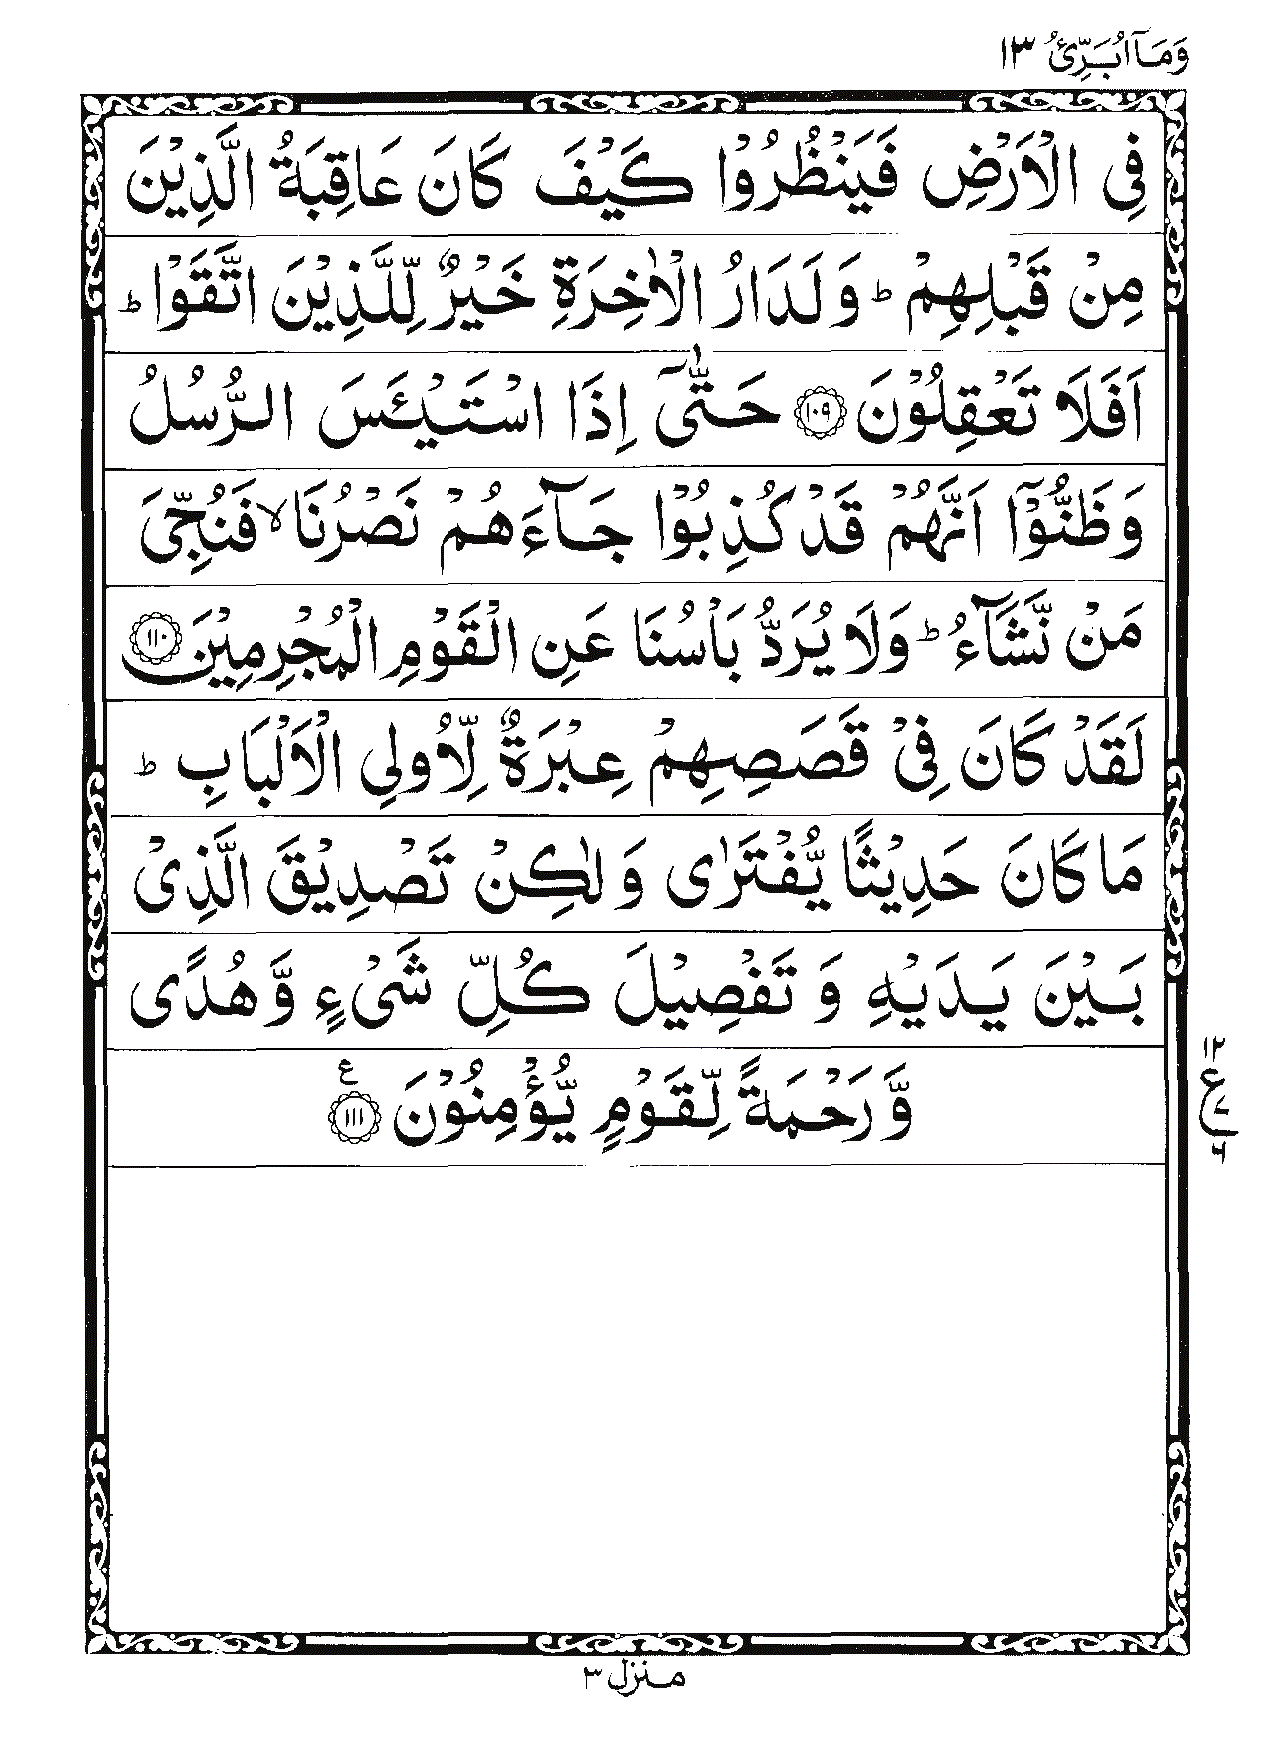 وَمَآ اُبَرِّئُ ١٣
فِى الْاَرْضِ فَيَنْظُرُوْا كَيْفَ كَانَ عَاقِبَةُ الَّذِيْنَ
مِنْ قَبْلِهِمْ ؕ وَلَدَارُ الْاٰخِرَةِ خَيْرٌ لِّلَّذِيْنَ اتَّقَوْا ؕ
اَفَلَا تَعْقِلُوْنَ ﴿١٠٩﴾ حَتّٰٓى اِذَا اسْتَيْئَسَ الرُّسُلُ
وَظَنُّوْٓا اَنَّهُمْ قَدْ كُذِبُوْا جَآءَهُمْ نَصْرُنَا ۙ فَنُجِّىَ
مَنْ نَّشَآءُ ؕ وَلَا يُرَدُّ بَاْسُنَا عَنِ الْقَوْمِ الْمُجْرِمِيْنَ ﴿١١٠﴾
لَقَدْ كَانَ فِىْ قَصَصِهِمْ عِبْرَةٌ لِّاُولِى الْاَلْبَابِ ؕ
مَا كَانَ حَدِيْثًا يُّفْتَرٰى وَلٰكِنْ تَصْدِيْقَ الَّذِىْ
بَيْنَ يَدَيْهِ وَ تَفْصِيْلَ كُلِّ شَىْءٍ وَّ هُدًى
وَّ رَحْمَةً لِّقَوْمٍ يُّؤْمِنُوْنَ ﴿١١١﴾ ع
١٢
ع
٧
٦
منزل ٣